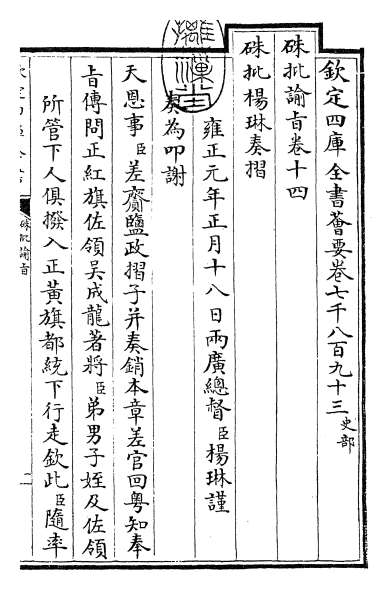 欽定四庫全書薈要卷七千八百九十三 史部
硃批諭旨卷十四
硃批楊琳奏摺
雍正元年正月十八日兩廣總督臣楊琳謹
奏為叩謝
天恩事臣差齎鹽政摺子并奏銷本章差官回粵知奉
旨傳問正紅旗佐領吳成龍著將臣弟男子姪及佐領
所管下人俱撥入正黃旗都統下行走欽此臣隨率
硃批諭旨